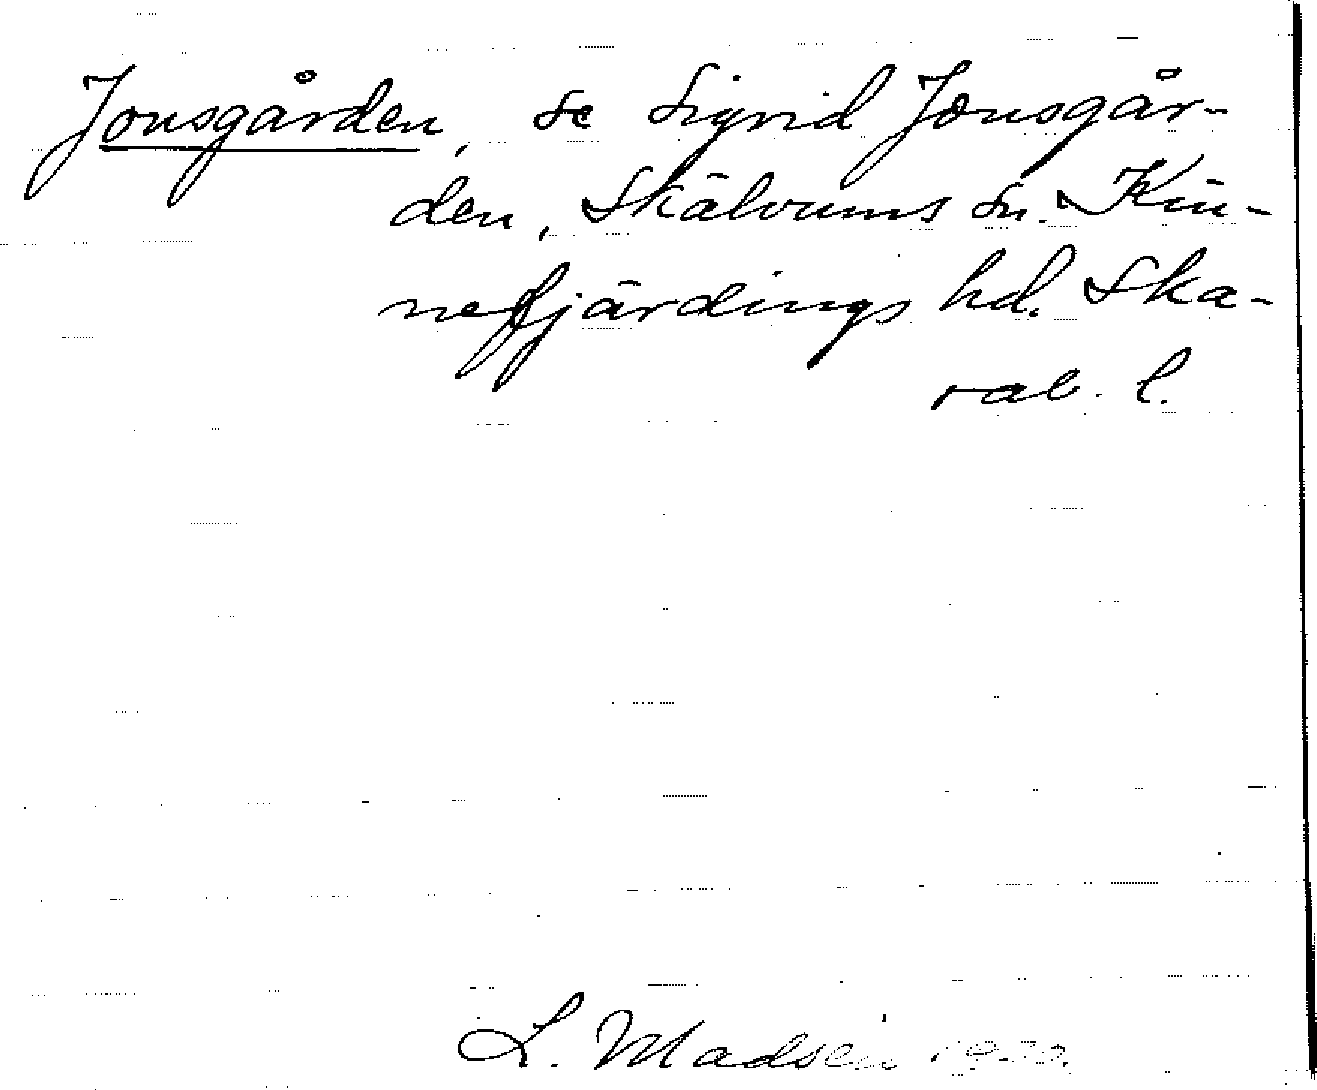 Jonsgården, se Sigrid Jonsgår-
den, Skälvums sn. Kin-
nefjärdings hd. Ska-
rab. l.
L. Madsén